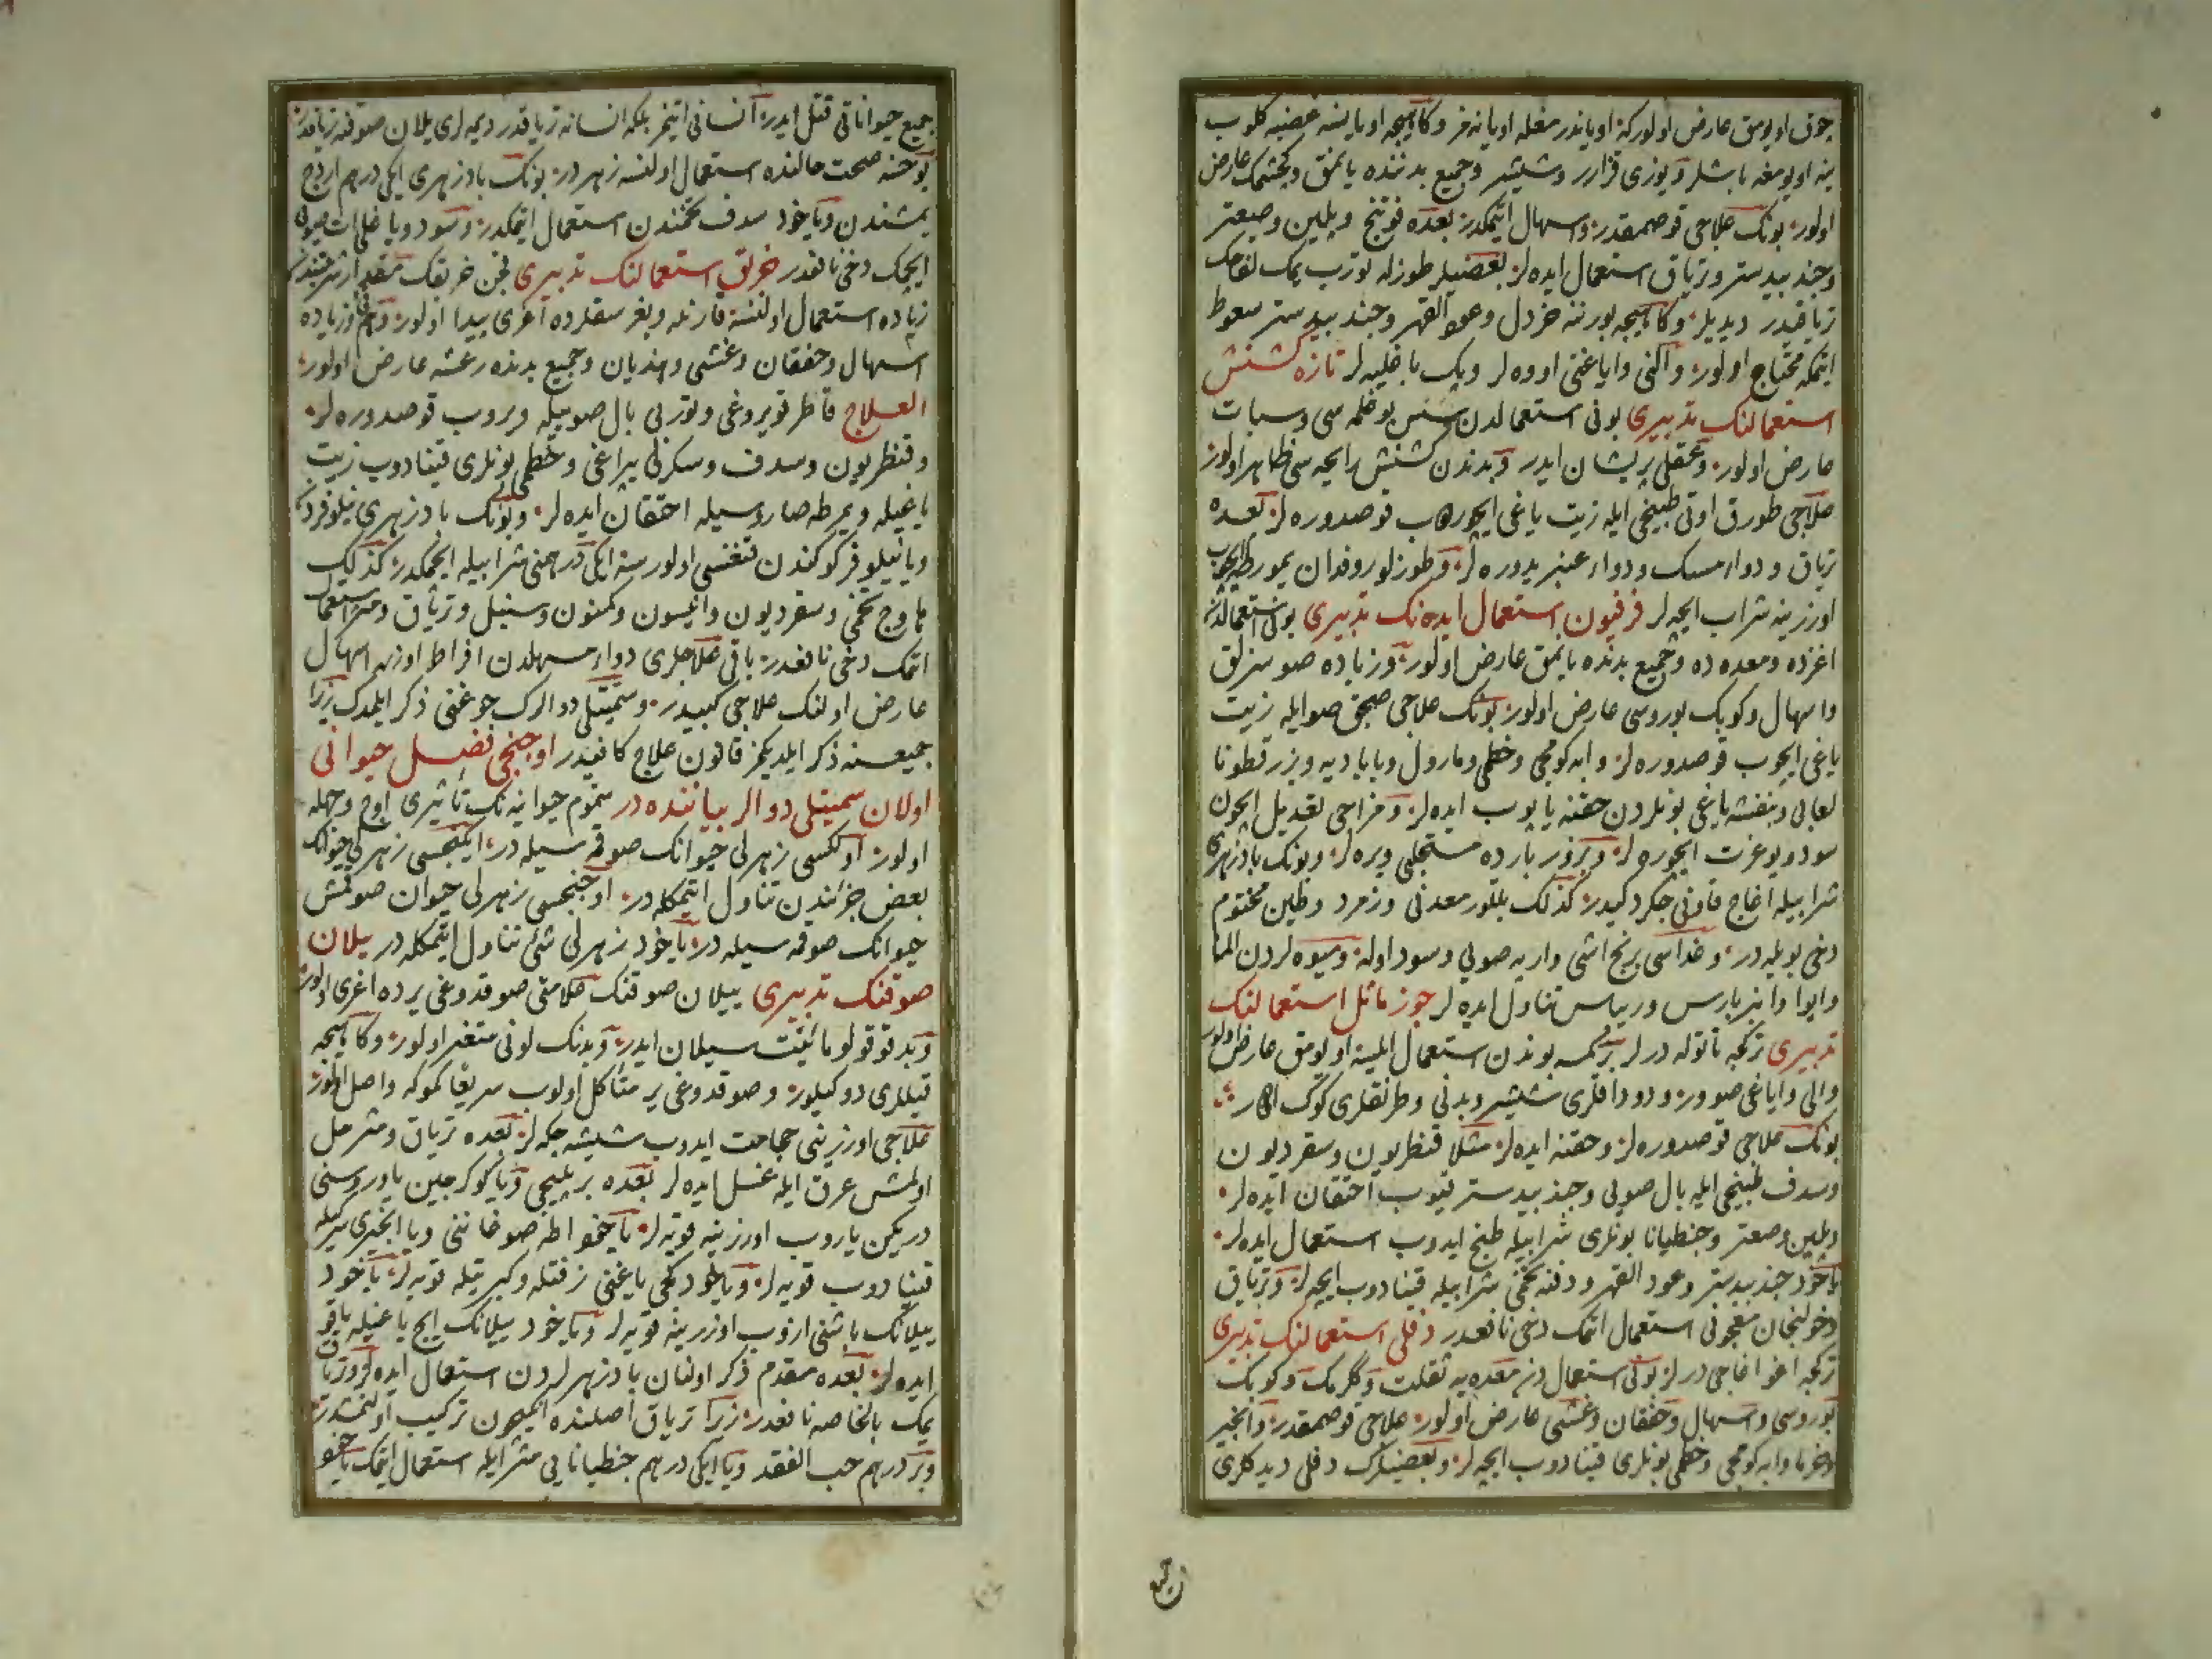 چوق اویومق عارض اولورکه اویاندرمغله اویانمز وکاهیجه اویانسه غضبه کلوب
ینه اویومغه باشلر ویوزی قزارر وشیشر وجمیع بدننده یانمق وکجشمک عارض
اولور بونک علاجی قوصمقدر واسهال ایتمکدر بعده فوتنج ویلین وصعتر
وجند بیدستر وتریاق استعمال ایده لر بعضیلر طوزله توربیمک لفاحک
تریاقیدر دیدیلر وکاهیجه بورننه خردل وعود القهر وجند بیدستر سعوط
ایتمکه محتاج اولور والنی وایاغنی اووه لر وپک باغلیه لر تازه کشنش
استعمالنک تدبیری بونی استعمالدن سس بوغلمه سی وسبات
عارض اولور وعقلی پریشان ایدر وبدندن کشنش رایحه سی ظاهر اولور
علاجی طورق اوتی طبیخی ایله زیت یاغی ایچوروب قوصدوره لر بعده
تریاق ودواء مسک ودواء عنبر یدوره لر وطوزلو روغدان یمورطه ایچوب
اوزرینه شراب ایچه لر فرفیون استعمال ایدنک تدبیری بونی استعمالدن
اغزده ومعده ده وجمیع بدنده یانمق عارض اولور وزیاده صوسزلق
واسهال وکوبک بوروسی عارض اولور بونک علاجی صیجق صوایله زیت
یاغی ایچوب قوصدوره لر وابه کومجی وخطمی ومارول وبابادیه وبزر قطونا
لعابی وبنفشه یاغی بونلردن حقنه یاپوب ایده لر ومزاجی تعدیل ایچون
سود ویوغرت ایچوره لر وبزور بارده مستحلبی ویره لر وبونک بادزهری
شرابیله اغاج قاونی جکردکیدر کذلک بللور معدنی وزمرد وطین مختوم
دخی بویله در وغداسی برنج اشی واربه صویی وسود اوله ومیوه لردن الما
وایوا وانبرباریس وریباس تناول ایده لر جوز ماثل استعمالنک
تدبیری ترکجه تاتوله درلر برکمسه بوندن استعمال ایلسه اویومق عارض اولور
والی وایاغی صوور ودوداقلری شیشر وبدنی وطرنقلری کوک اولور
بونک علاجی قوصدوره لر وحقنه ایده لر مثلا قنطریون وسقردیون
وسدف طبیخی ایله بال صویی وجند بیدستر قیوب احتقان ایده لر
ویلین وصعتر وجنطیانا بونلری شرابیله طبخ ایدوب استعمال ایده لر
یاخود جند بیدستر وعود القهر ودفنه تخمی شرابیله قینادوب ایچه لر وتریاق
وخولنجان معجونی استعمال اتمک دخی نافعدر دفلی استعمالنک تدبیری
ترکجه اغو اغاجی درلر بونی استعمال دن معده یه ثقلت وکلرمک وکوبک
بوروسی واسهال وخفقان وغشی عارض اولور علاجی قوصمقدر وانجیر
وخرما وابه کومجی وخطمی بونلری قینادوب ایچه لر وبعضیلرک دفلی دیدکلری
جمیع
جمیع حیواناتی قتل ایدر انسانی ایتمز بلکه انسانه تریاقدر دیمه لری یلان صوقنه تریاقدر
یوخسه صحت حالنده استعمال اولنسه زهردر بونک بادزهری ایکی درهم اردج
یمشندن ویاخود سدف تخمندن استعمال ایتمکدر وسود ویا صویی
ایچمک دخی نافعدر خربق استعمالنک تدبیری قجن خربقک مقدار شربتندن
زیاده استعمال اولنسه قارنله وبغرسقلرده اغری پیدا اولور وزیاده
اسهال وخفقان وغشی وهذیان وجمیع بدنده رعشه عارض اولور
العلاج قاطر قویروغی وتوربی بال صوییله ویروب قوصدوره لر
وقنطریون وسدف وسکرلی یپراغی وخطمی بونلری قینادوب زیت
یاغیله ویمرطه صاروسیله احتقان ایده لر وبونک بادزهری نیلوفردر
ویا نیلوفر کوکندن قنغسی اولورسه ایکی درهمنی شرابیله ایچمکدر کذلک
هاوج تخمی وسقردیون وانیسون وکمنون وسنبل وتریاق استعمال
اتمک دخی نافعدر باقی علاجلری دواء مسهلدن افراط اوزره اسهال
عارض اولنک علاجی کبیدر وسمیتلی دوالرک جوغنی ذکر ایلمدک زیرا
جمیعسنه ذکر ایلدیکمز قانون علاج کافیدر اوجنجی فصل حیوانی
اولان سمیتلی دوالر بیاننده در سموم حیوانیه نک تأثیری اوج وجهله
اولور اولکسی زهرلی حیوانک صوقمسیله در ایکنجیسی زهرلی حیوانک
بعض جزئندن تناول ایتمکله در اوجنجیسی زهرلی حیوان صوقمش
حیوانک صوقمسیله در یاخود زهرلی شئ تناول ایتمکله در ییلان
صوقنک تدبیری ییلان صوقنک علامتی صوقدوغی یرده اغری اولور
وبد قوقولو مائیت سیلان ایدر وبدنک لونی متغیر اولور وکاهیجه
قیللری دوکیلور وصوقدوغی یر متأکل اولوب سریعا کموکه واصل اولور
علاجی اوزرینی حجامت ایدوب شیشه چکه لر بعده تریاق ومثر حل
اولمش عرق ایله غسل ایده لر بعده بر پلیجی ویا کوکرجین یاوروسنی
دریکن یاروب اوزرینه قویه لر یاخود اطه صوغاننی ویا انجیری سرکیله
قینادوب قویه لر ویا بلود کجی یاغنی زفتله وکبریتله قویه لر یاخود
ییلانک باشنی ازوب اوزرینه قویه لر ویاخود ییلانک ایچ یاغیله یاقو
ایده لر بعده مقدم ذکر اولنان بادزهرلردن استعمال ایده لر وتریاق
یمک بالخاصه نافعدر زیرا تریاق اصلنده انکچون ترکیب اولنمشدر
وبر درهم حب الفقد ویا ایکی درهم جنطیانایی مثر ایله استعمال اتمک یاخود